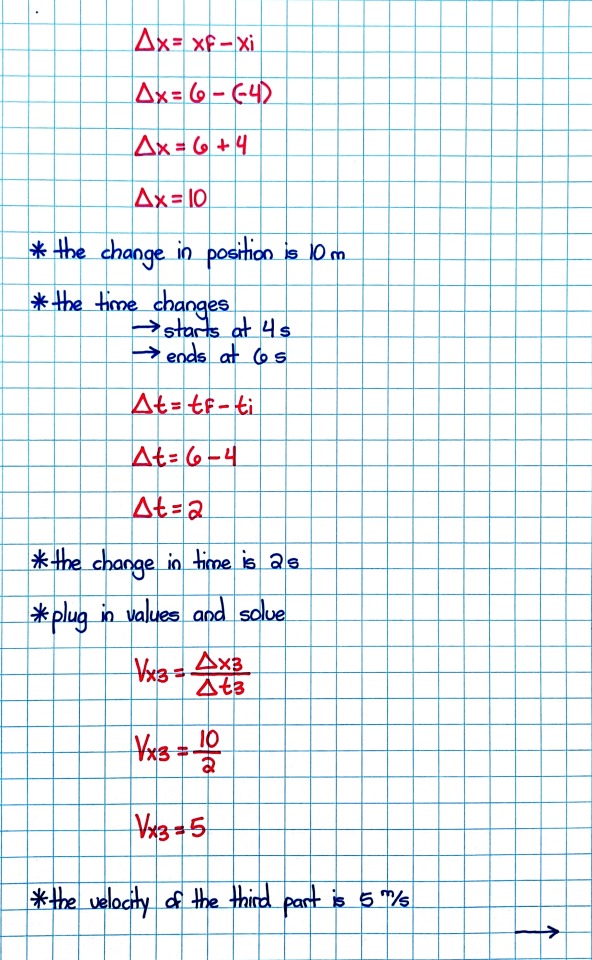 Δx = xf - xi
Δx = 6 - (-4)
Δx = 6 + 4
Δx = 10
* the change in position is 10 m
* the time changes
→ starts at 4 s
→ ends at 6 s
Δt = tf - ti
Δt = 6 - 4
Δt = 2
* the change in time is 2 s
* plug in values and solve
Vx3 = Δx3/Δt3
Vx3 = 10/2
Vx3 = 5
* the velocity of the third part is 5 m/s
→